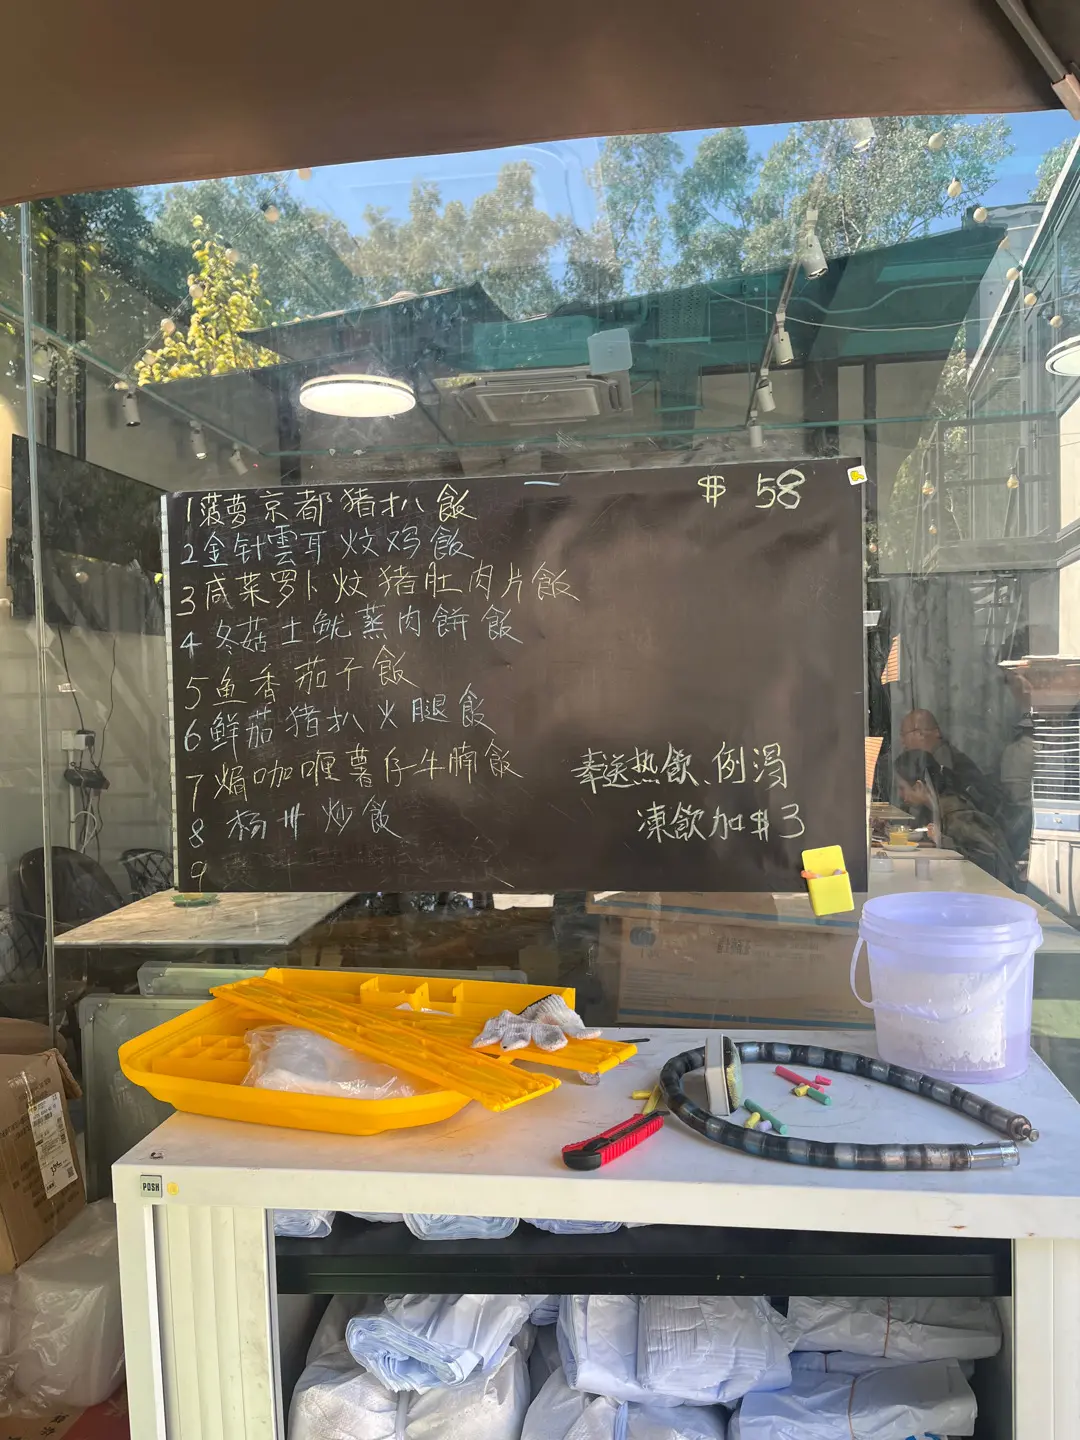 1菠萝京都猪扒飯
$ 58
2金针雲耳炆鸡飯
3咸菜罗卜炆猪肚肉片飯
4冬菇土鱿蒸肉餅飯
5鱼香茄子飯
6鲜茄猪扒火腿飯
7焗咖喱薯仔牛腩飯
8杨卅炒飯
9
奉送热飲、例湯
凍飲加$3
POSH